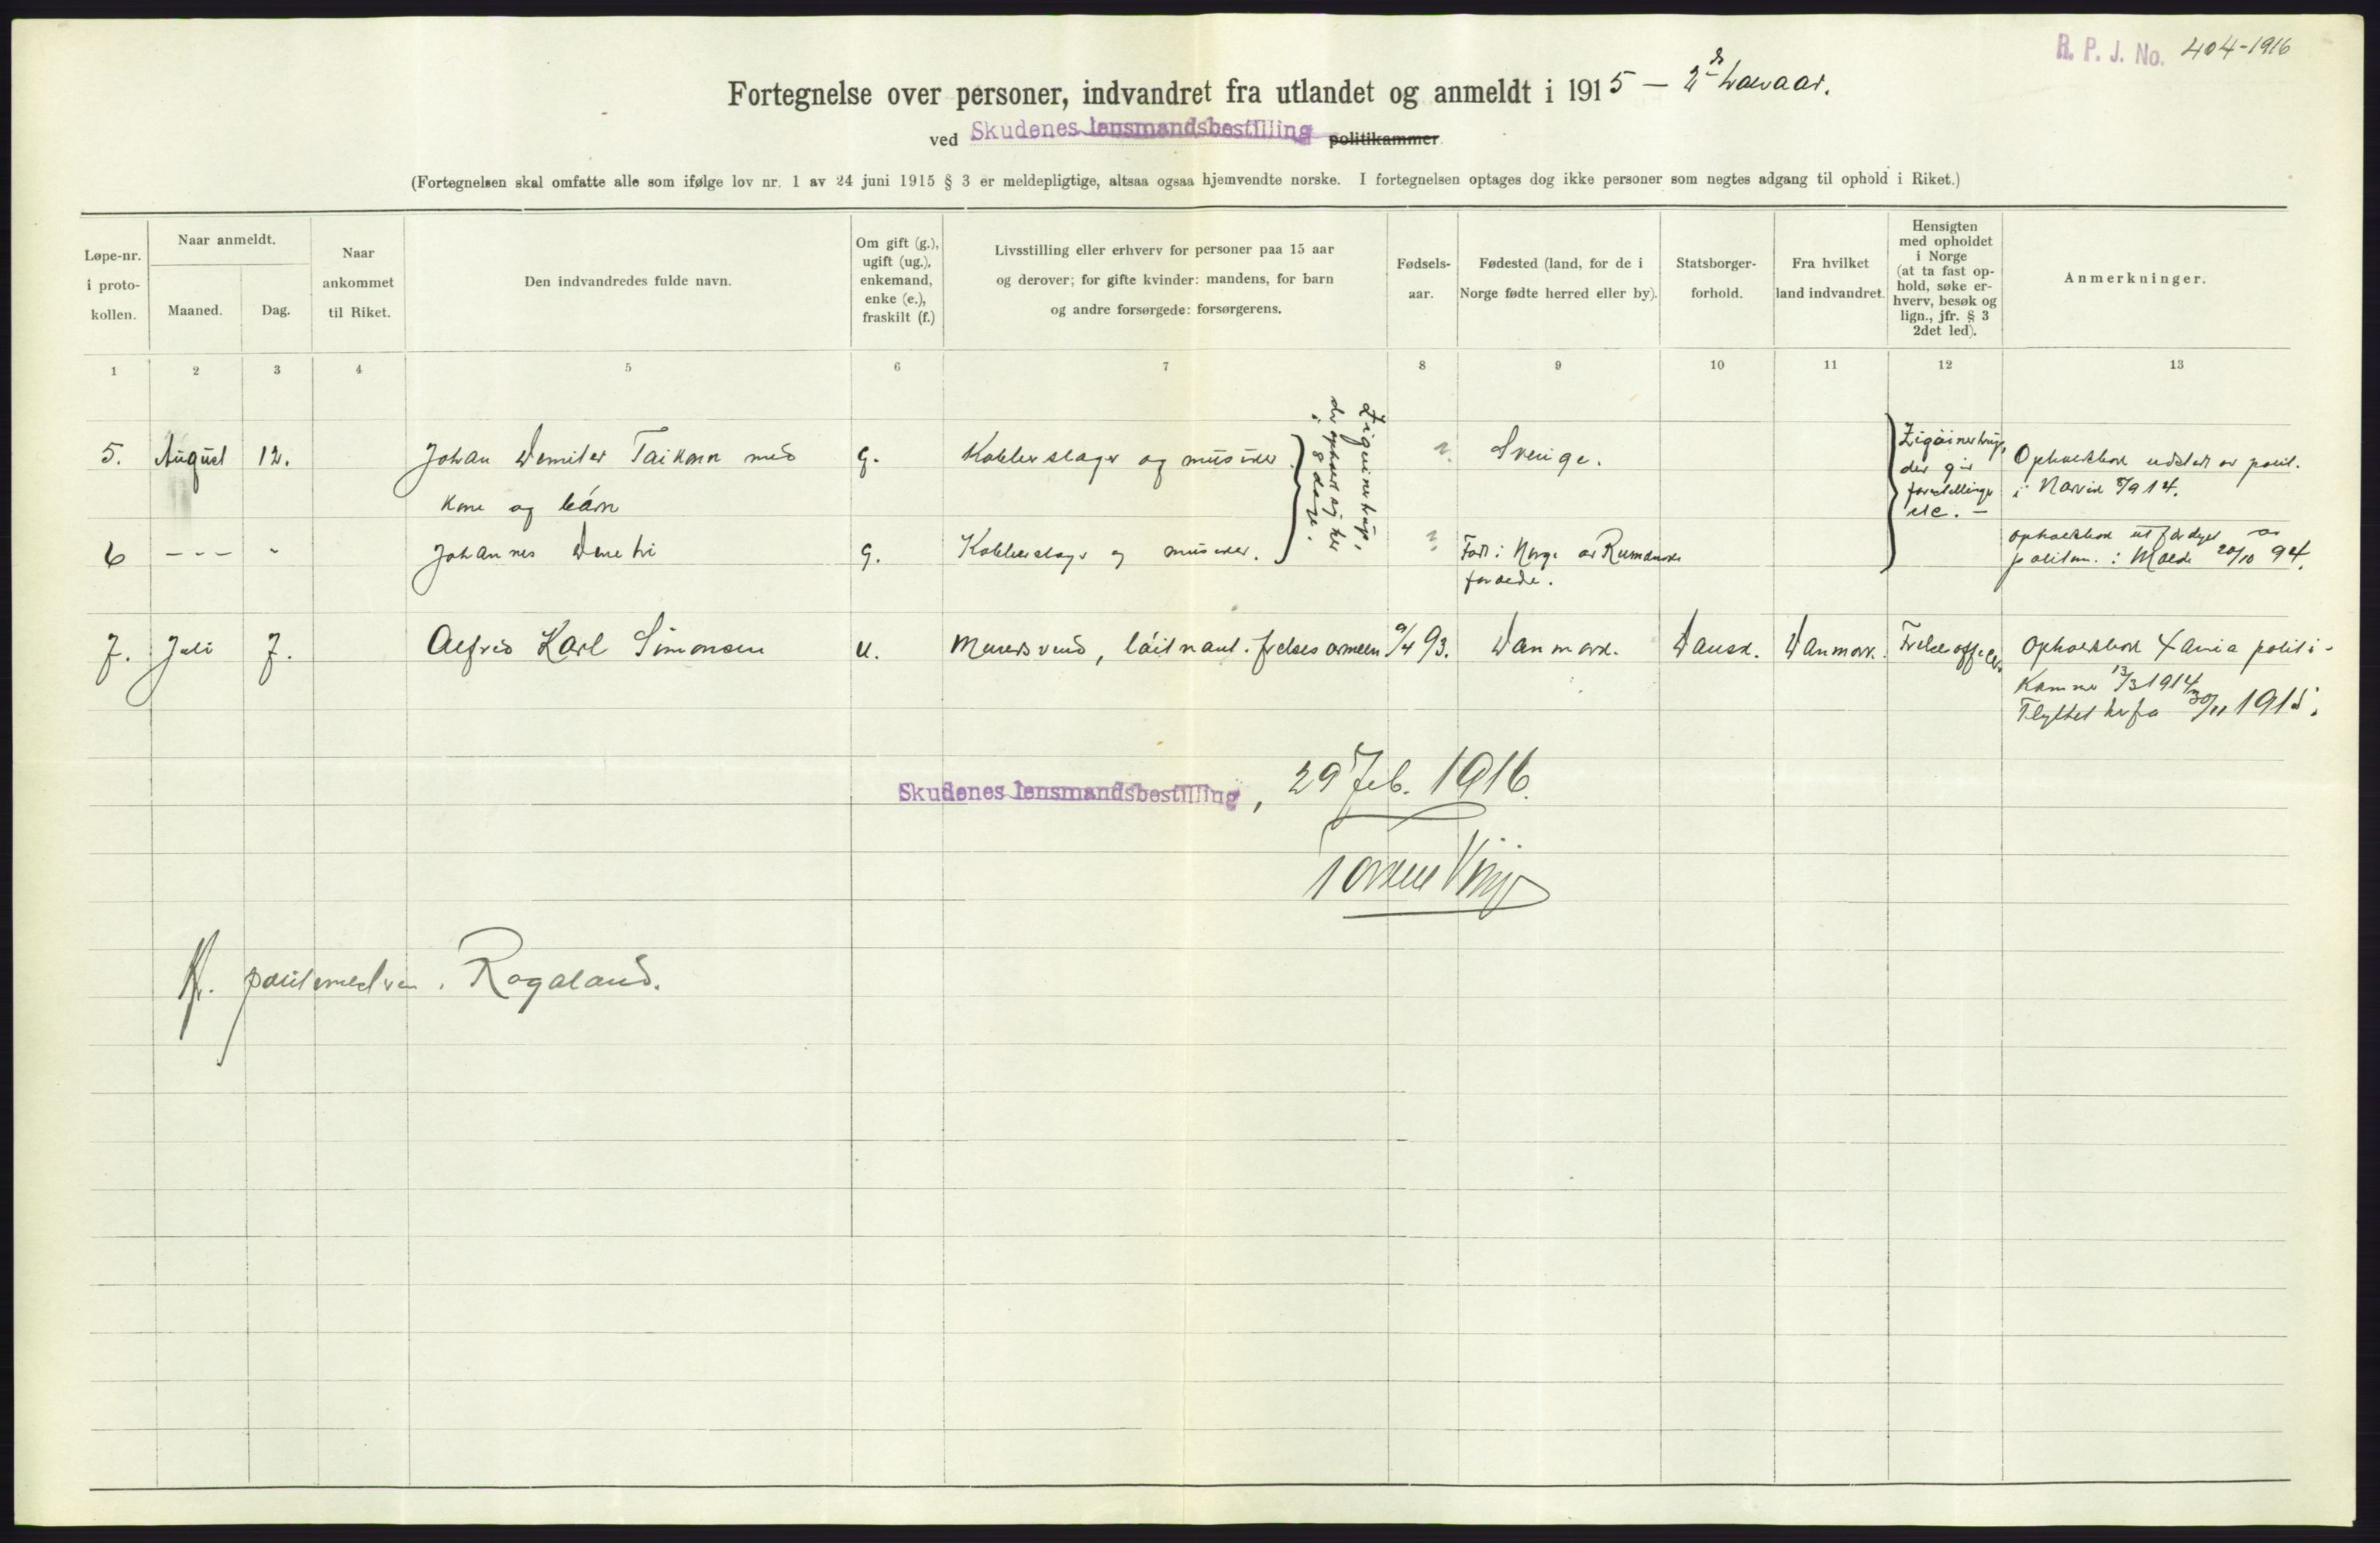 R. P. J. No. 404-1916
Fortegnelse over personer, indvandret fra utlandet og anmeldt i 1915 – 2d halvaar.
ved Skudenes lensmandsbestilling politikammer
(Fortegnelsen skal omfatte alle som ifølge lov nr. 1 av 24 juni 1915 § 3 er meldepligtige, altsaa ogsaa hjemvendte norske. I fortegnelsen optages dog ikke personer som negtes adgang til ophold i Riket.)
Løpe-nr. i proto- kollen.
Naar anmeldt.
Maaned. Dag.
Naar ankommet til Riket.
Den indvandredes fulde navn.
Om gift (g.), ugift (ug.), enkemand, enke (e.), fraskilt (f.)
Livsstilling eller erhverv for personer paa 15 aar og derover; for gifte kvinder: mandens, for barn og andre forsørgede: forsørgerens.
Fødsels- aar.
Fødested (land, for de i Norge fødte herred eller by).
Statsborger- forhold.
Fra hvilket land indvandret.
Hensigten med opholdet i Norge (at ta fast op- hold, søke er- hverv, besøk og lign., jfr. § 3 2det led).
Anmerkninger.
1 2 3 4 5 6 7 8 9 10 11 12 13
5. August 12. Johan Demiter Taikon med g. Kobberslager og musiker ? Sverige.
kone og børn
Zigøinertrup, der opholdt sig her i 8 dage.
Zigøinertrup, der gir forestillinger etc. –
Opholdsbok utstedt av polit. i Narvik 8/9 14.
6 - - - " Johannes Demetri g. Kobberslager og musiker. ? Født i Norge av Rumænske forælde.
opholdsbok utfærdiget av politim. i Molde 20/10 94.
7. Juli 7. Alfred Karl Simonsen u. Murersvend, løitnant i frelsesarmeen 9/4 93. Danmark. Dansk. Danmark. Frelseoffiser
Opholdsbok X ania politi-
kammer 13/3 1914
Flyttet herfra 30/11 1915.
Skudenes lensmandsbestilling, 29 Feb. 1916.
Hr. politimesteren i Rogaland.